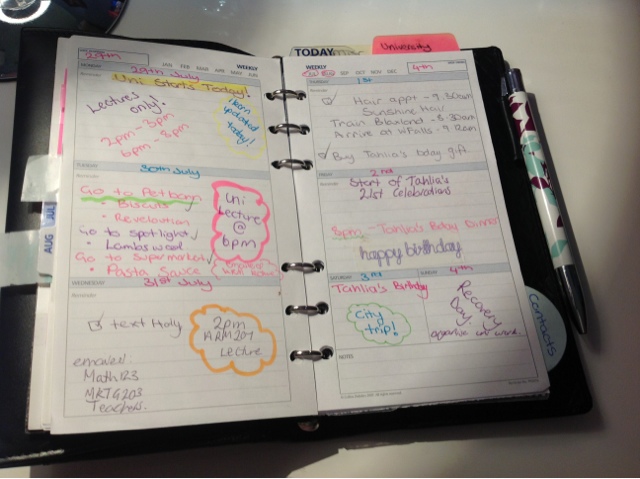 29th
JAN FEB MAR APR MAY JUN
WEEKLY
MONDAY
29th July
Reminder
Uni Starts Today!
Lectures only!
2pm - 3pm
6pm - 8pm
updated
today!
TUESDAY
30th July
Reminder
Go to Petbarn
Biscuits
• Revolution
Go to spotlight
• Lambswool
Go to Supermarket
• Pasta Sauce
Uni
Lecture
@
6pm
WEDNESDAY
31st July
Reminder
text Holly
2pm
Lecture
emailed:
Math123
MKTG203
Teachers.
AUG
JUL
TODAY
University
WEEKLY
SEP OCT NOV DEC
4th
THURSDAY
1st
Reminder
Hair appt - 9.30am
Sunshine Hair
Train Blaxland - 8.30am
Arrive at WFalls - 9.12am
Buy Tahlia's bday gift
FRIDAY
2nd
Reminder
Start of Tahlia's
21st Celebrations
8pm - Tahlia's Bday Dinner
happy birthday
SATURDAY
3rd
SUNDAY
4th
Tahlia's Birthday
City
trip!
Recovery
Day.
NOTES
Contacts